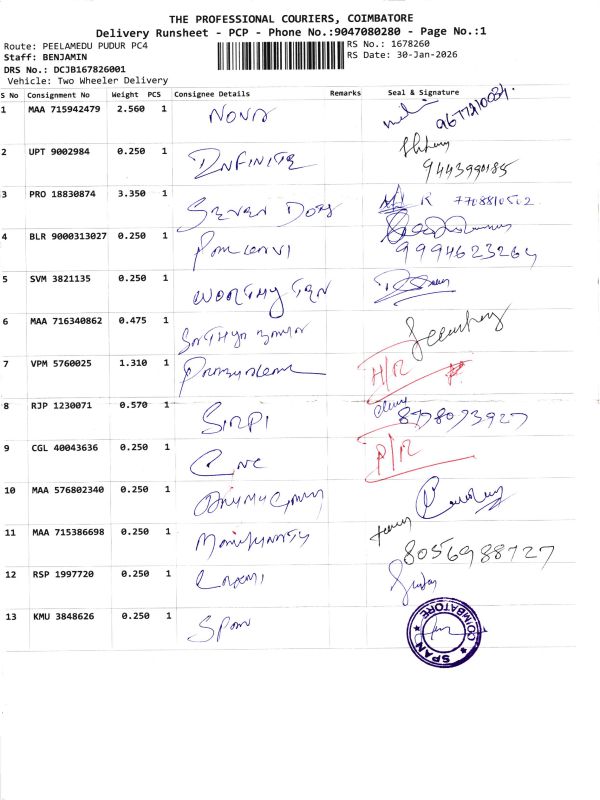 THE PROFESSIONAL COURIERS, COIMBATORE
Delivery Runsheet - PCP - Phone No.:9047080280 - Page No.:1
Route: PEELAMEDU PUDUR PC4 RS No.: 1678260
Staff: BENJAMIN RS Date: 30-Jan-2026
DRS No.: DCJB167826001
Vehicle: Two Wheeler Delivery
S No Consignment No Weight PCS Consignee Details Remarks Seal & Signature
1 MAA 715942479 2.560 1 NOVA
2 UPT 9002984 0.250 1 INFINITE 9443990185
3 PRO 18830874 3.350 1 SEVEN DOTS R 7708810502
4 BLR 9000313027 0.250 1 9994623264
5 SVM 3821135 0.250 1 WORTHY TEN
6 MAA 716340862 0.475 1
7 VPM 5760025 1.310 1 H/R
8 RJP 1230071 0.570 1 SIRPI 8778073927
9 CGL 40043636 0.250 1 CNC P/R
10 MAA 576802340 0.250 1
11 MAA 715386698 0.250 1 8056988727
12 RSP 1997720 0.250 1 LAXMI
13 KMU 3848626 0.250 1 SPAN
COIMBATORE
SPAN